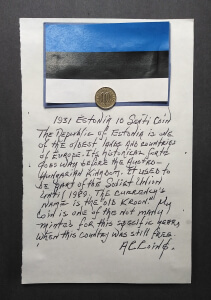 1931 Estonia 10 Senti Coin
The Republic of Estonia is one
of the oldest lands and countries
of Europe. Its historical facts
goes way before the Austro-
Hungarian Kingdom. It used to
be part of the Soviet Union
until 1989. The currency's
name is the "old Kroon" My
coin is one of the not many
minted for this specific year,
when this country was still free.
A.C. Coins.